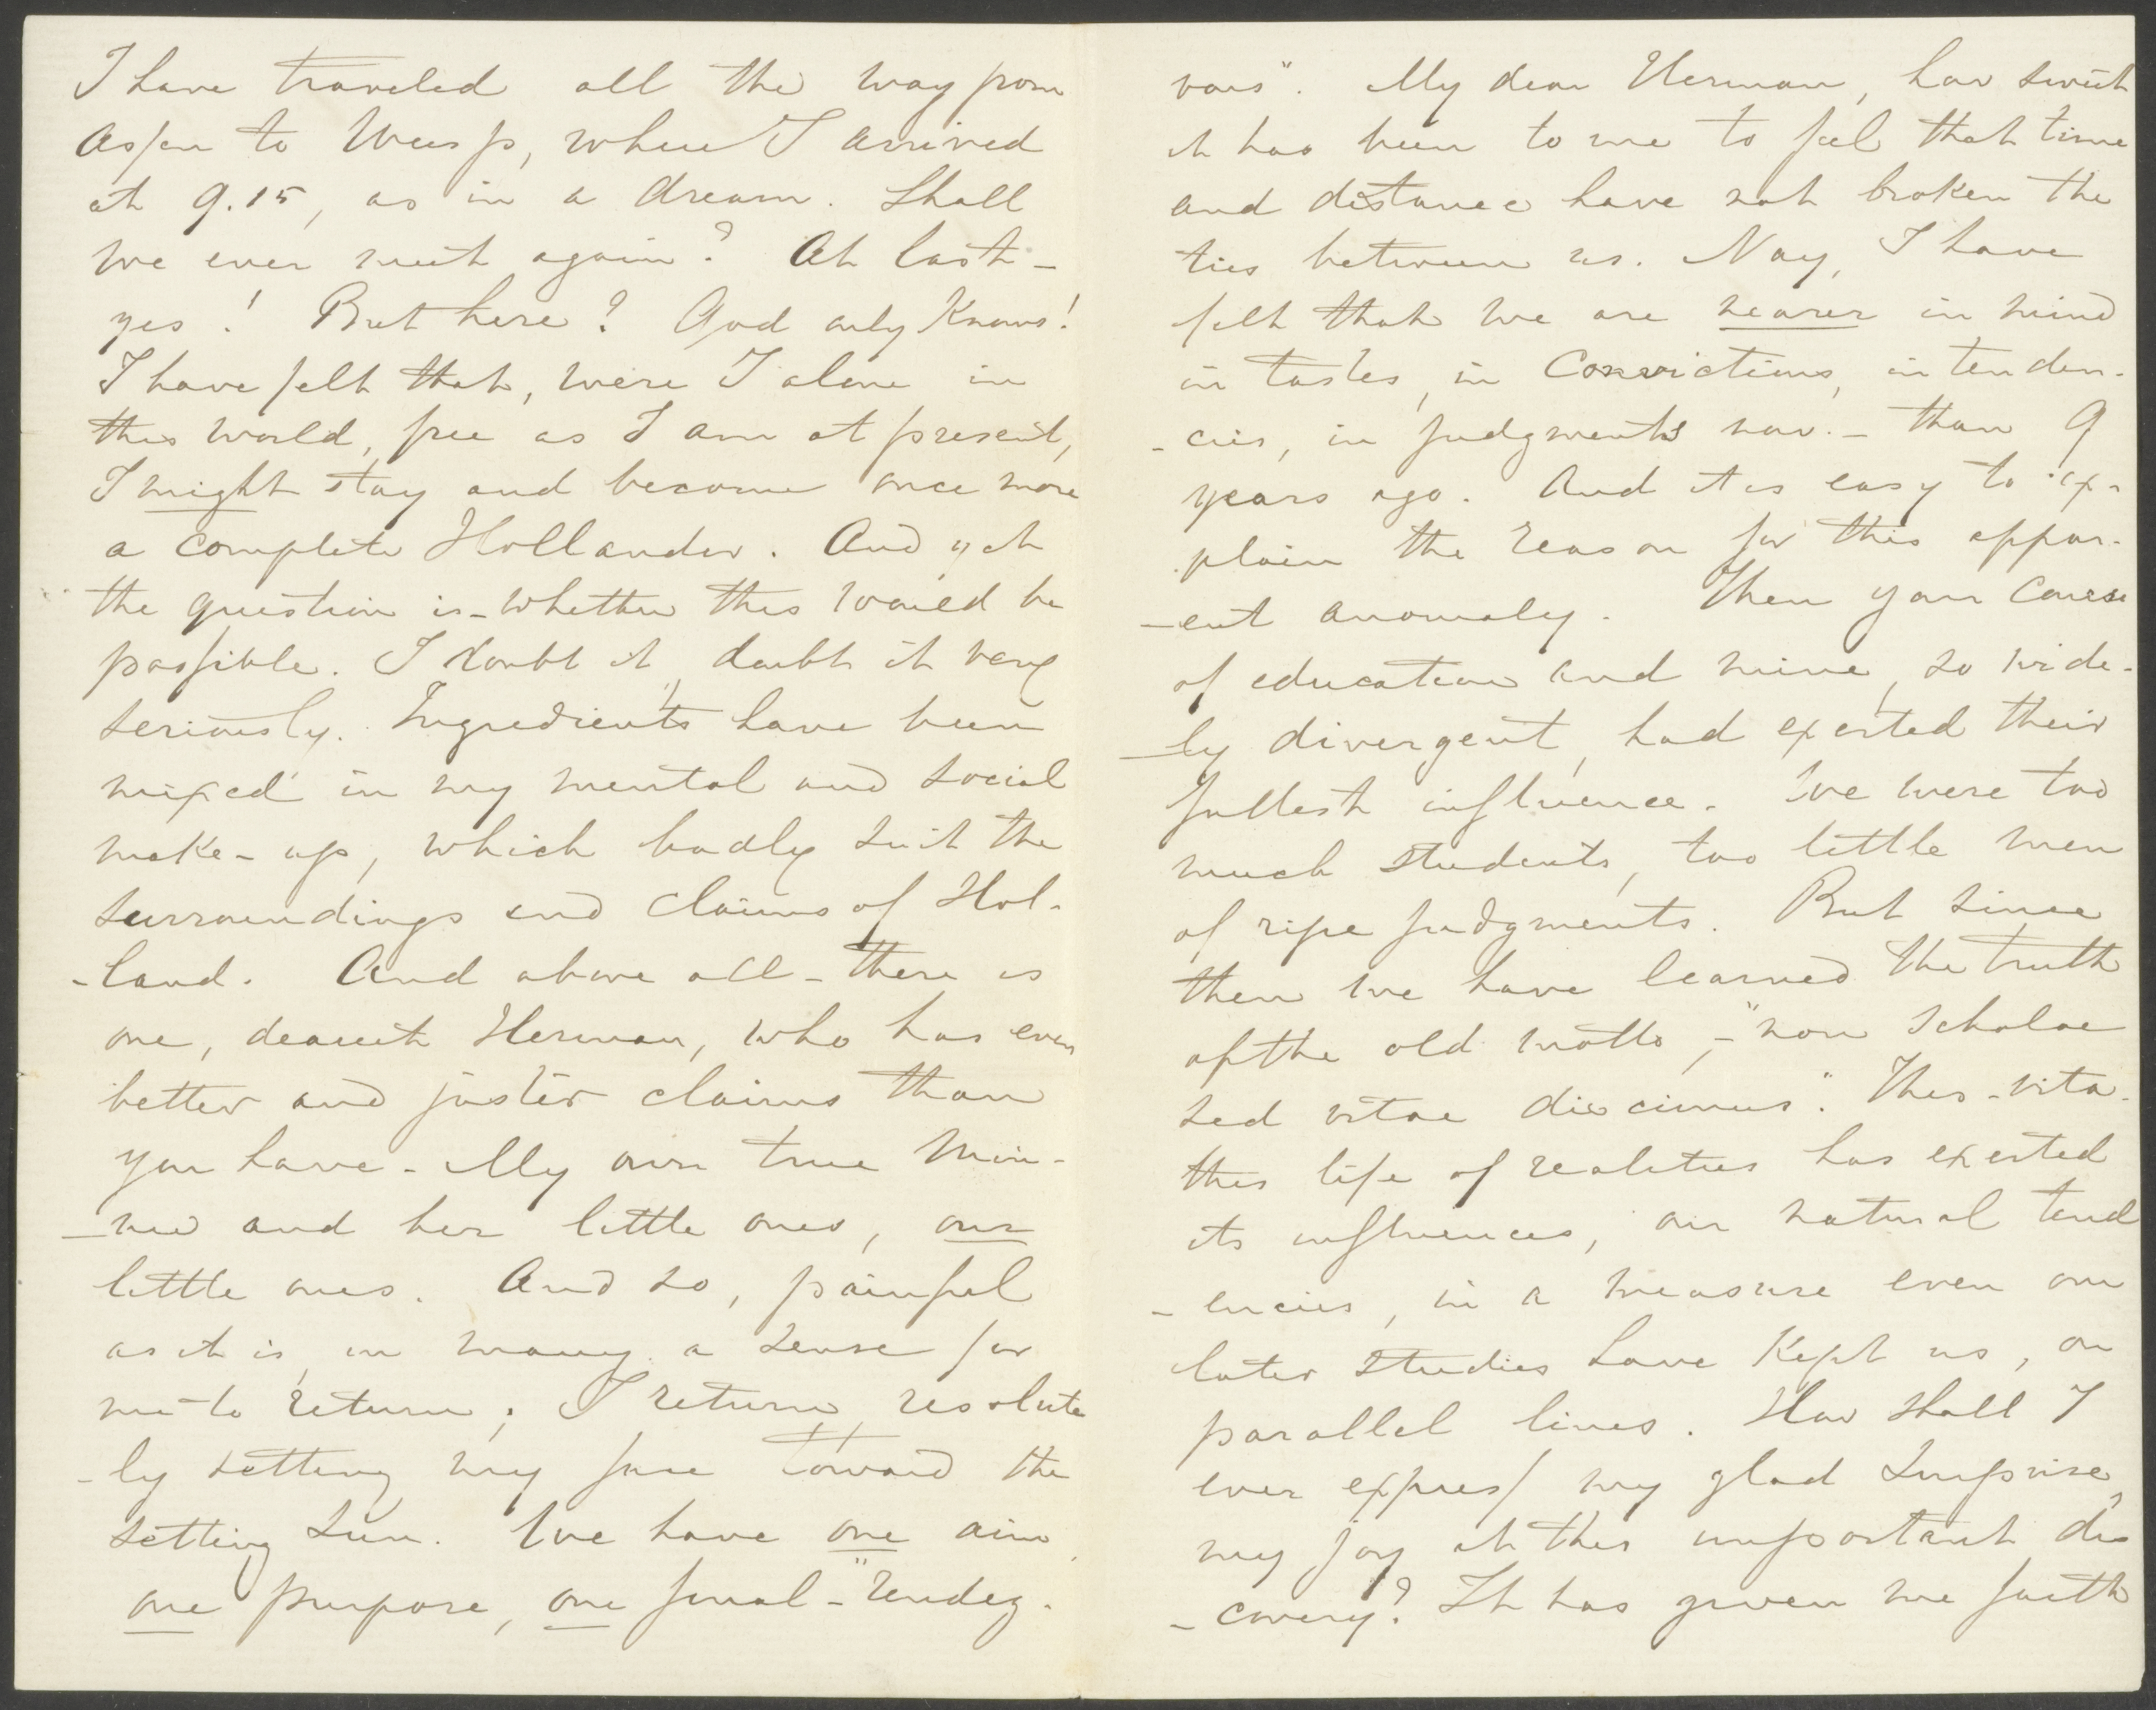 I have traveled all the way from
Assen to Weesp, where I arrived
at 9.15, as in a dream. Shall
we ever meet again? At last -
yes! But here? God only knows!
I have felt that, were I alone in
this world, free as I am at present,
I might stay and become once more
a complete Hollander. And yet
the question is - whether this would be
possible. I doubt it, doubt it very
seriously. Ingredients have been
mixed in my mental and social
make-up, which badly suit the
surroundings and claims of Hol-
-land. And above all - there is
one, dearest Herman, who has even
better and juster claims than
you have - My own true Min-
-nie and her little ones, our
little ones. And so, painful
as it is, in many a sense for
me to return; I return, resolute
-ly setting my face toward the
setting sun. We have one aim,
one purpose, one final - "rendez-
vous". My dear Herman, how sweet
it has been to me to feel that time
and distance have not broken the
ties between us. Nay, I have
felt that we are nearer in mind
in tastes, in convictions, in tenden-
-cies, in judgments now - than 9
years ago. And it is easy to ex-
plain the reason for this appar-
-ent anomaly. Then your course
of education and mine, so wide-
-ly divergent, had exerted their
fullest influence. We were too
much students, too little men
of ripe judgments. But since
then we have learned the truth
of the old motto, - "non scholae
sed vitae discimus". This - vita -
this life of realities has exerted
its influences, our natural tend
-encies, in a measure even our
later studies have kept us, on
parallel lines. How shall I
ever express my glad surprise,
my joy at this important dis
-covery? It has given me faith